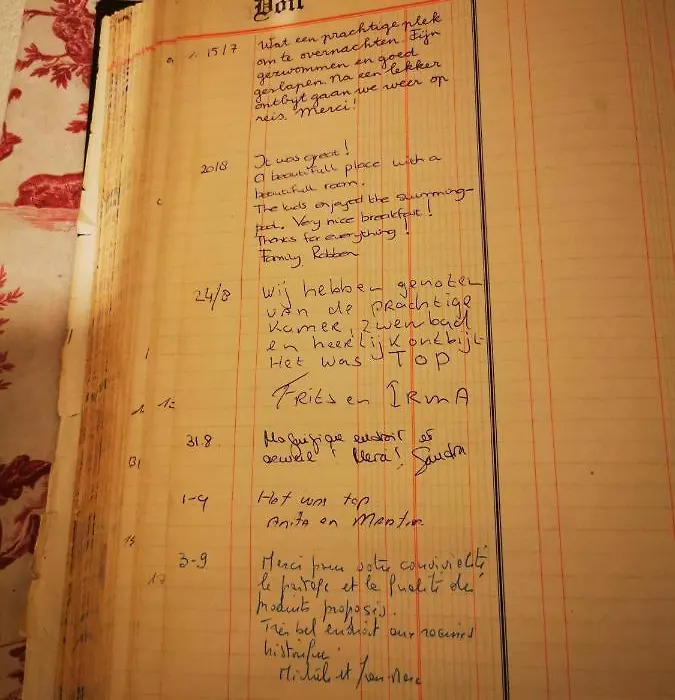 Doit
15/7 Wat een prachtige plek
om te overnachten Fijn
gezwommen en goed
geslapen na een lekker
ontbijt gaan we weer op
reis. Merci!
20/8 It was great!
A beautifull place with a
beautifull room.
The kids enjoyed the swimming-
pool. Very nice breakfast!
Thanks for everything!
Family Robben
24/8 Wij hebben genoten
van de prachtige
kamer, zwembad
en heerlijk ontbijt
Het was TOP
Frits en IRMA
31.8 Magnifique endroit et
acueil! Merci! Sandra
1-9 Het was top
Anita en Martin
3-9 Merci pour votre convivialité
le partage et la qualité des
produits proposés.
Très bel endroit aux racines
historique.
Michèle et Jean-Marc